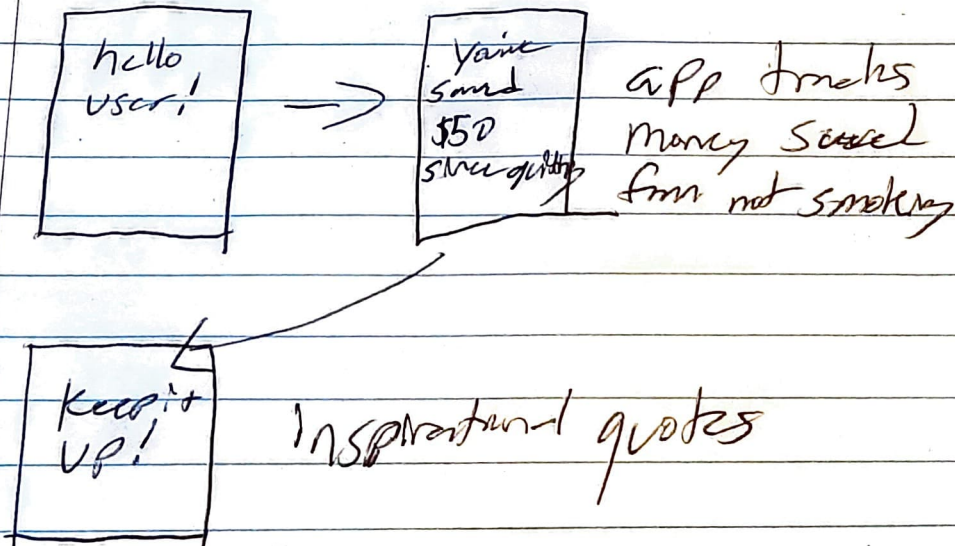 hello
user!
You've
saved
$50
since quitting
app tracks
money saved
from not smoking
Keep it
up!
Inspirational quotes